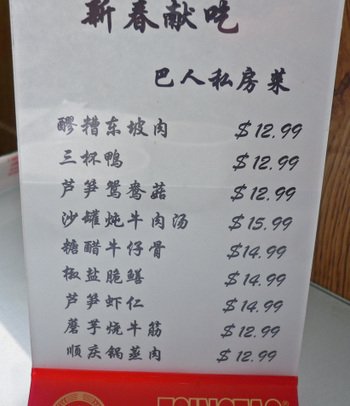 新春献吃
巴人私房菜
醪糟东坡肉 $12.99
三杯鸭 $12.99
芦笋鸳鸯菇 $12.99
沙罐炖牛肉汤 $15.99
糖醋牛仔骨 $14.99
椒盐脆鳝 $14.99
芦笋虾仁 $14.99
魔芋烧牛筋 $12.99
顺庆锅蒸肉 $12.99
TSINGTAO®